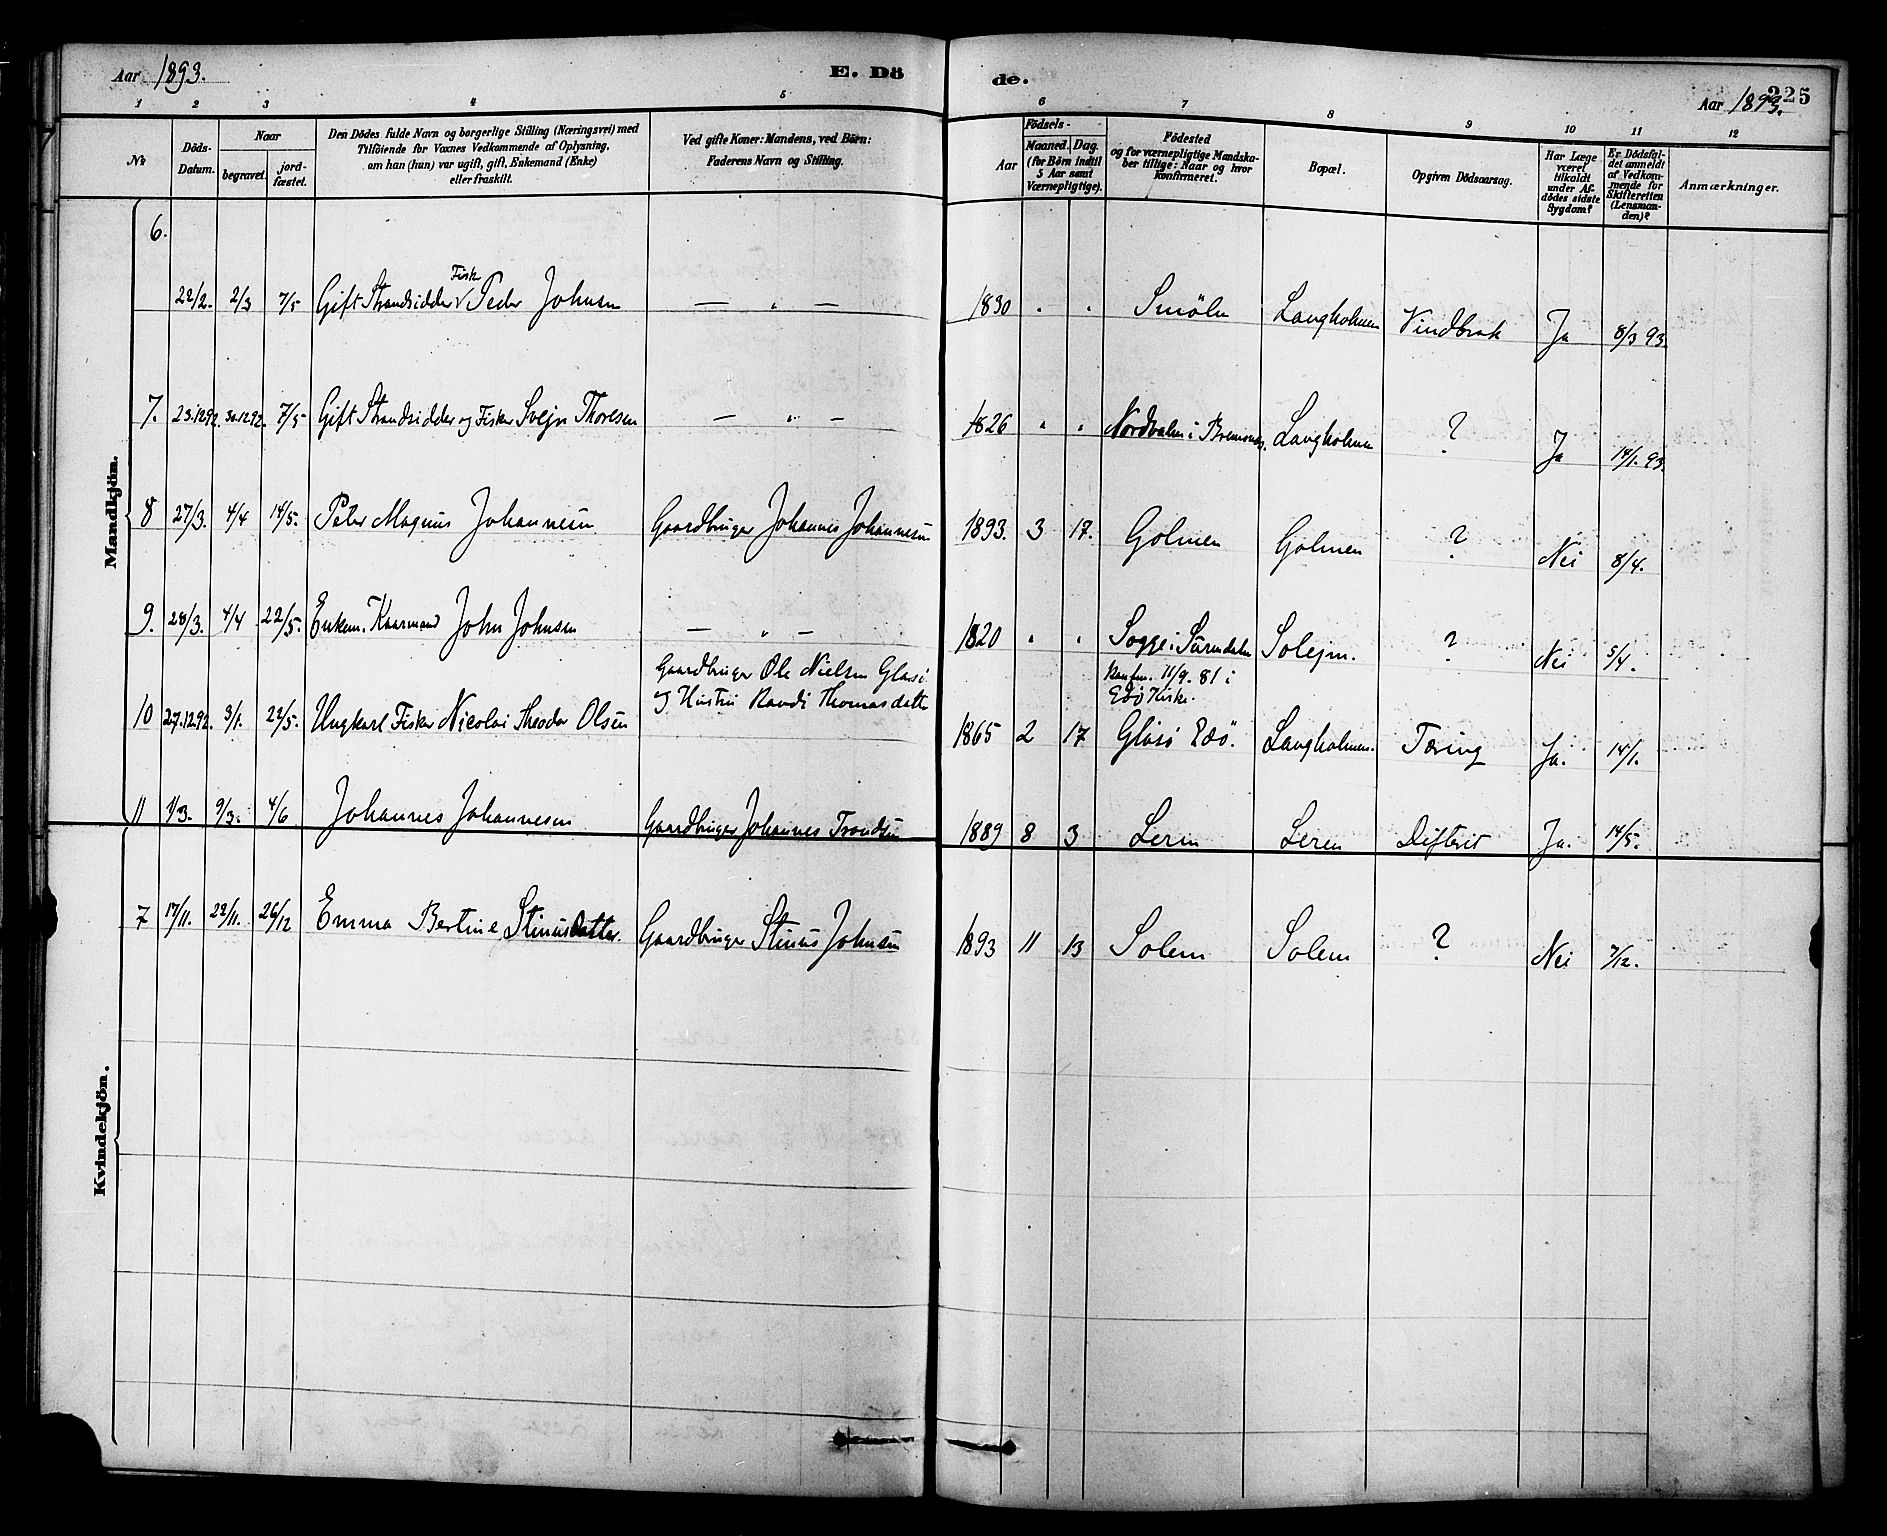 Aar 1893. E. Dö de. Aar 1893. 225
1 2 3 4 5 6 7 8 9 10 11 12
No
Döds-Datum.
Naar
begravet.
jord-fæstet.
Den Dödes fulde Navn og borgerlige Stilling (Næringsvei) med
Tilföiende for Voxnes Vedkommende af Oplysning,
om han (hun) var ugift, gift, Enkemand (Enke)
eller fraskilt.
Ved gifte Koner: Mandens, ved Börn:
Faderens Navn og Stilling.
Födsels-
Aar
Maaned. Dag.
(for Börn indtil
5 Aar samt
Værnepligtige).
Födested
og for værnepligtige Mandska-
ber tillige: Naar og hvor
konfirmeret.
Bopæl.
Opgiven Dödsaarsag.
Har Læge
været
tilkaldt
under Af-
dödes sidste
Sygdom?
Er Dödsfal-
det anmeldt
af Vedkom-
mende for
Skifteretten
(Lensman-
den)?
Anmærkninger.
Mandkjön.
6.
Fisker
22/2. 2/3 7/5 Gift Strandsidder √ Peder Johnsen — " — 1830 " " Smölen Langholmen Vindbrok Ja 8/3 93.
7. 23.1292. 30.1292. 7/5 Gift Strandsidder og Fisker Svejn Thoresen — " — 1826 " " Nordvalen i Bremsnes. Langholmen ? Ja 14/1. 93
8 27/3. 4/4 14/5. Peter Magnus Johannesen Gaardbruger Johannes Johannesen 1893. 3 17. Golmen Golmen ? Nei 8/4.
9. 28/3. 4/4 22/5. Enkem. Kaarmand John Johnsen — " — 1820 " " Sogge i Surendalen Solejm. ? Nei 5/4.
Gaardbruger Ole Nielsen Glasö Konfm. 11/9. 81 i
og Hustru Randi Thomasdatter Edö Kirke.
10 27.1292. 3/1. 22/5. Ungkarl Fisker Nicolai Theodor Olsen 1865 2 17 Glasö Edö. Langholmen. Tæring Ja. 14/1.
11 1/3. 9/3. 4/6 Johannes Johannesen Gaardbruger Johannes Trondsen 1889 8 3 Leren Leren Difterit Ja. 14/5.
Kvindekjön.
7 17/11. 22/11. 26/12 Emma Bertine Stinusdatter. Gaardbruger Stinus Johnsen 1893 11 13 Solem Solem ? Nei 7/12.